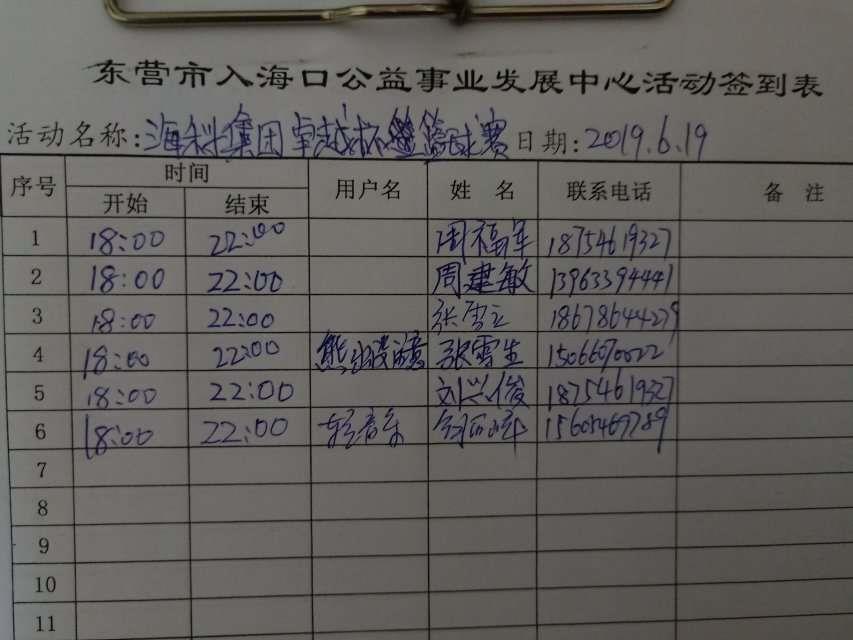 东营市入海口公益事业发展中心活动签到表
活动名称:海科集团卓越杯篮球赛 日期:2019.6.19
序号 时间 用户名 姓名 联系电话 备注
开始 结束
1 18:00 22:00 周福军 18754619327
2 18:00 22:00 周建敏 13963394441
3 18:00 22:00 张雪立 18678644279
4 18:00 22:00 熊出没 张雪生 15066070022
5 18:00 22:00 刘兴俊 18754619327
6 18:00 22:00 轻音乐 15605469789
7
8
9
10
11